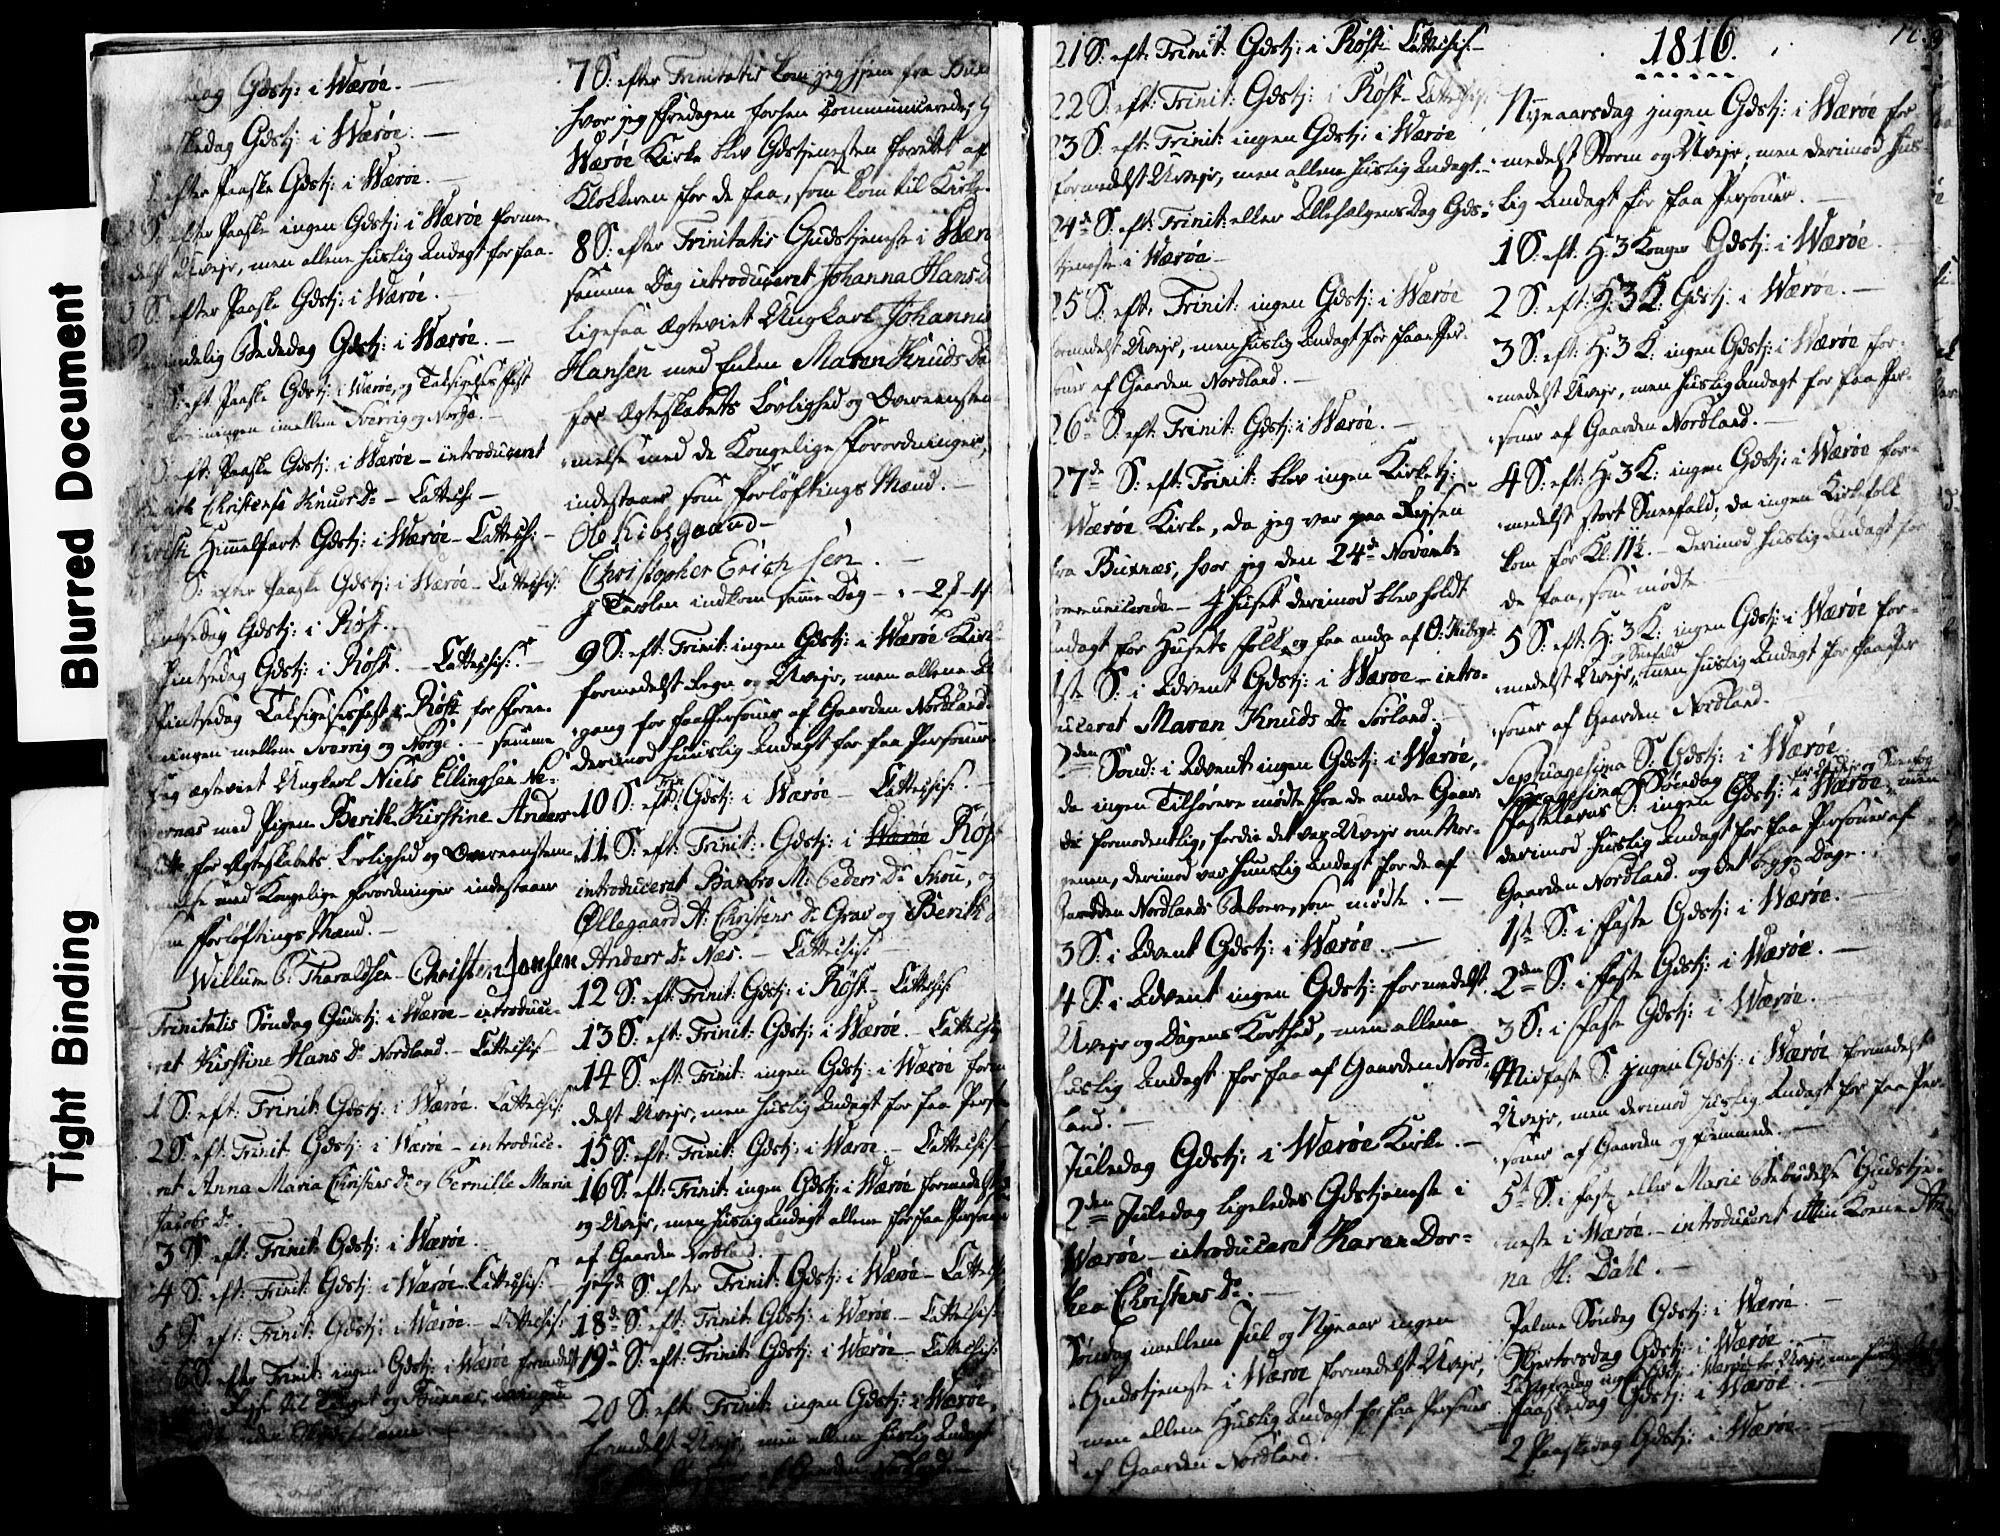 Blurred Document
Tight Binding
Gdstj: i Wærøe. —
Gdstj: i Wærøe. —
efter Paaske Gdstj: i Wærøe. —
S: efter Paaske ingen Gdstj: i Wærøe forme-
delst Uvejr, men allene huslig Andagt for faa.
3 S: efter Paaske Gdstj: i Wærøe. —
Bededag Gdstj: i Wærøe. —
S: eft. Paaske Gdstj: i Wærøe, og Taksigelses Fest
imellem Sverrig og Norge. —
S: eft: Paaske Gdstj: i Wærøe — introduceret
Christense Knuds Dr — Cattechis: —
Christi Himmelfart Gdstj: i Wærøe — Cattechis: —
S: efter Paaske Gdstj: i Wærøe — Cattechis:
Pintsedag Gdstj: i Røst. —
Pintsedag Gdstj: i Røst. — Cattechis: —
Pintsedag Taksigelsesfest i Røst for Foree-
ningen mellem Sverrig og Norge. — samme
Dag ægteviet Ungkarl Niels Ellingsen Ne-
med Pigen Berith Kirstine Anders
for Ægteskabets Lovlighed og Overeenstem-
melse med Kongelige Forordninger indestaaer
som Forløftings Mænd. —
Willum P: Tharaldsen — Christen Jonsen
Trinitatis Søndag Gudstj: i Wærøe — introduce-
ret Kirstine Hans Dr Nordland. — Cattechis:
1 S: eft: Trinit: Gdstj: i Wærøe. Cattechis:
2 S: eft: Trinit: Gdstj: i Wærøe — introduce-
ret Anna Maria Christens Dr og Pernille Maria
Jacobs Dr. —
3 S: eft: Trinit: Gdstj: i Wærøe.
4 S: eft: Trinit: Gdstj: i Wærøe — Cattechis: —
5 S: eft: Trinit: Gdstj: i Wærøe. — Cattechis:
6 S: efter Trinit: ingen Gdstj: i Wærøe formedelst
Rejse til og Buxnæs,
7 S: efter Trinitatis kom jeg hjem fra Bux
hvor jeg Fredagen forhen communicerede; I
Wærøe Kirke blev Gdstjenesten forrettet af
Klokkeren for de faa, som kom til Kirke.
8 S: efter Trinitatis Gudstjeneste i Wær
samme Dag introduceret Johanna Hans D
ligesaa ægteviet Ungkarl Johannes
Hansen med Enken Maren Knuds Da
for Ægteskabets Lovlighed og Overeenstem-
melse med de Kongelige Forordninger,
indestaaer som Forløftings Mænd. —
Ole Kibsgaard —
Christopher Erichsen. —
I Tavlen indkom samme Dag —
9 S: eft: Trinit: ingen Gdstj: i Wærøe Kirk
formedelst Regn og Uvejr, men allene
gang for faa Personer af Gaarden Nordland.
derimod huuslig Andagt for faa Personer
10 S: eft: Trin: Gdstj: i Wærøe — Cattechis: —
11 S: eft: Trinit: Gdstj: i Wærøe Røst
introduceret Barbro M: Peders Dr Skou, og
Øllegaard A: Christens Dr Grav og Berith
Anders Dr Næs. — Cattechis:
12 S: eft: Trinit: Gdstj: i Røst — Cattechis:
13 S: eft: Trinit: Gdstj: i Wærøe. — Cattechis:
14 S: eft: Trinit: ingen Gdstj: i Wærøe form
delst Uvejr, men huslig Andagt for faa Perso
15 S: eft: Trinit: Gdstj: i Wærøe. — Cattechis:
16 S: eft: Trinit: ingen Gdstj: i Wærøe formedelst
og Uvejr, men huslig Andagt allene for faa Personer
af Gaarden Nordland.
17de S: efter Trinit: Gdstj: i Wærøe — Cattechis:
18de S: eft: Trinit: Gdstj: i Wærøe — Cattechis:
19de S: eft: Trinit: Gdstj: i Wærøe — Cattechis:
20 S: eft: Trinit: ingen Gdstj: i Wærøe,
formedelst Uvejr, men allene huslig Andagt
af Gaarden Nordland. —
21 S: eft: Trinit: Gdstj: i Røst: Cattechis: —
22 S: eft: Trinit: Gdstj: i Røst — Cattechis:
23 S: eft: Trinit: ingen Gdstj: i Wærøe
formedelst Uvejr, men allene huslig Andagt. —
24de S: eft: Trinit: eller Allehelgens Dag Gds-
tjeneste i Wærøe —
25 S: eft: Trinit: ingen Gdstj: i Wærøe
formedelst Uvejr, men huslig Andagt for faa Per-
soner af Gaarden Nordland. —
26de S: eft: Trinit: Gdstj: i Wærøe. —
27de S: eft: Trinit: blev ingen Kirketj:
Wærøe Kirke, da jeg var paa Rejsen
fra Buxnæs, hvor jeg den 24de Novembr
communicerede — I Huset derimod blev holdt
Andagt for Husets Folk og faa andre af
1ste S: i Advent Gdstj: i Wærøe — intro-
duceret Maren Knuds Dr Sørland.
2den Sønd: i Advent ingen Gdstj: i Wærøe,
da ingen Tilhørere mødte fra de andre Gaar-
de formodentlig, fordie det var Uvejr om Mor-
genen, derimod var huuslig Andagt for de af
Gaarden Nordlands Beboere, som mødte. —
3 S: i Advent Gdstj: i Wærøe. —
4 S: i Advent ingen Gdstj: formedelst
Uvejr og Dagens Korthed, men allene
huslig Andagt for faa af Gaarden Nord-
land. —
Juledag Gdstj: i Wærøe Kirke. —
2den Juledag ligeledes Gdstjeneste i
Wærøe — introduceret Karen Dor-
thea Christens Dr. —
Søndag imellem Jul og Nyeaar ingen
Gudstjeneste i Wærøe formedelst Uvejr,
men allene Huslig Andagt for faa Personer
af Gaarden Nordland. —
1816.
Nyeaarsdag ingen Gdstj: i Wærøe for-
medelst Storm og Uvejr, men derimod hus-
lig Andagt for faa Personer. —
1 S: eft: H: 3 Konger Gdstj: i Wærøe. —
2 S: eft: H: 3 K: Gdstj: i Wærøe. —
3 S: eft: H: 3 K: ingen Gdstj: i Wærøe for-
medelst Uvejr, men huslig Andagt for faa Per-
soner af Gaarden Nordland. —
4 S: eft: H: 3 K: ingen Gdstj: i Wærøe for-
medelst stort Sneefald, da ingen Kirkefolk
kom før Kl. 11½. — Derimod huslig Andagt for
de faa, som mødte.
5 S: eft: H: 3 K: ingen Gdstj: i Wærøe for-
medelst Uvejr og Sneefald, men huslig Andagt for faa Per-
soner af Gaarden Nordland. —
Septuagesima S: Gdstj: i Wærøe
Sexagesima Søndag
Fastelavns S: ingen Gdstj: i Wærøe for Uvejr og Sneefog, men
derimod huslig Andagt for faa Personer af
Gaarden Nordland. og det begge Dage.
1ste S: i Faste Gdstj: i Wærøe. —
2den S: i Faste Gdstj: i Wærøe. —
3 S: i Faste Gdstj: i Wærøe. —
Midfaste S: ingen Gdstj: i Wærøe formedelst
Uvejr, men derimod huslig Andagt for faa Per-
soner af Gaarden og Fremmede. —
5te S: i Faste eller Mariæ Bebudelse Gudstje-
neste i Wærøe — introduceret
na H: Dahl. —
Palme Søndag Gdstj: i Wærøe. —
Skjertorsdag Gdstj: i Wærøe. —
Langfredag ingen Gdstj: i Wærøe for Uvejr, men huslig
Paaskedag Gdstj: i Wærøe. —
2 Paaskedag Gdstj: i Wærøe —